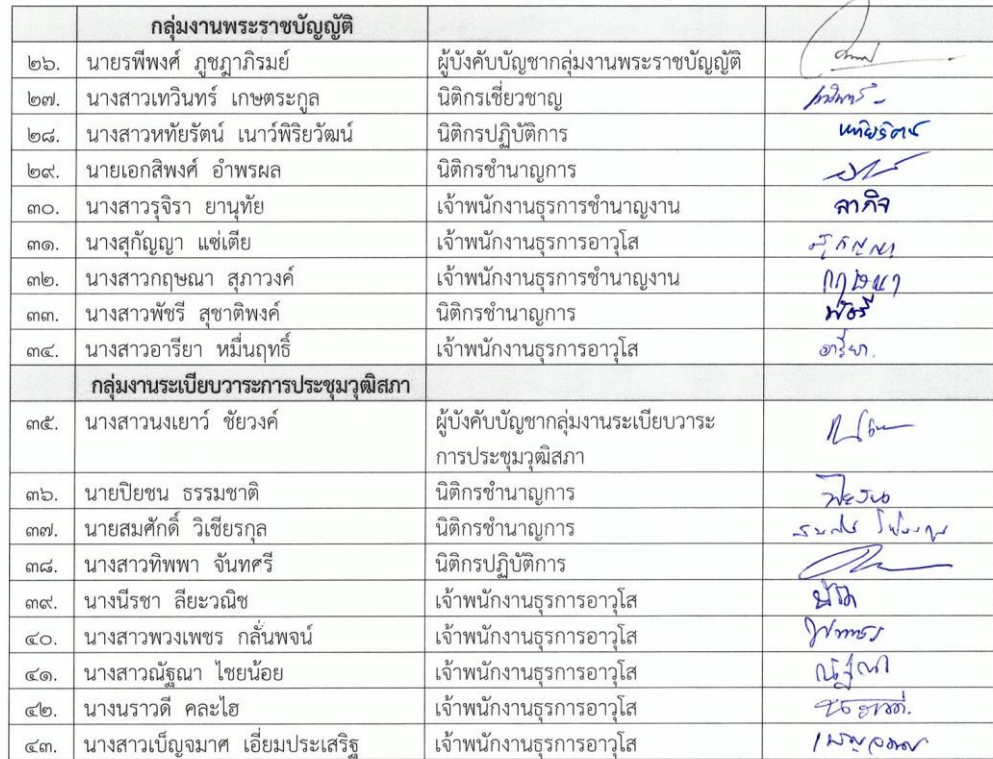 กลุ่มงานพระราชบัญญัติ
๒๖. นายรพีพงศ์ ภูชฎาภิรมย์ ผู้บังคับบัญชากลุ่มงานพระราชบัญญัติ
๒๗. นางสาวเทวินทร์ เกษตระกูล นิติกรเชี่ยวชาญ
๒๘. นางสาวหทัยรัตน์ เนาว์พิริยวัฒน์ นิติกรปฏิบัติการ หทัยรัตน์
๒๙. นายเอกสิพงศ์ อำพรผล นิติกรชำนาญการ
๓๐. นางสาวรุจิรา ยานุทัย เจ้าพนักงานธุรการชำนาญงาน ลากิจ
๓๑. นางสุกัญญา แซ่เตีย เจ้าพนักงานธุรการอาวุโส สุกัญญา
๓๒. นางสาวกฤษณา สุภาวงค์ เจ้าพนักงานธุรการชำนาญงาน กฤษณา
๓๓. นางสาวพัชรี สุชาติพงค์ นิติกรชำนาญการ พัชรี
๓๔. นางสาวอารียา หมื่นฤทธิ์ เจ้าพนักงานธุรการอาวุโส อารียา.
กลุ่มงานระเบียบวาระการประชุมวุฒิสภา
๓๕. นางสาวนงเยาว์ ชัยวงค์ ผู้บังคับบัญชากลุ่มงานระเบียบวาระ
การประชุมวุฒิสภา
๓๖. นายปิยชน ธรรมชาติ นิติกรชำนาญการ
๓๗. นายสมศักดิ์ วิเชียรกุล นิติกรชำนาญการ
๓๘. นางสาวทิพพา จันทศรี นิติกรปฏิบัติการ
๓๙. นางนีรชา ลียะวณิช เจ้าพนักงานธุรการอาวุโส
๔๐. นางสาวพวงเพชร กลั่นพจน์ เจ้าพนักงานธุรการอาวุโส
๔๑. นางสาวณัฐณา ไชยน้อย เจ้าพนักงานธุรการอาวุโส ณัฐณา
๔๒. นางนราวดี คละไฮ เจ้าพนักงานธุรการอาวุโส
๔๓. นางสาวเบ็ญจมาศ เอี่ยมประเสริฐ เจ้าพนักงานธุรการอาวุโส